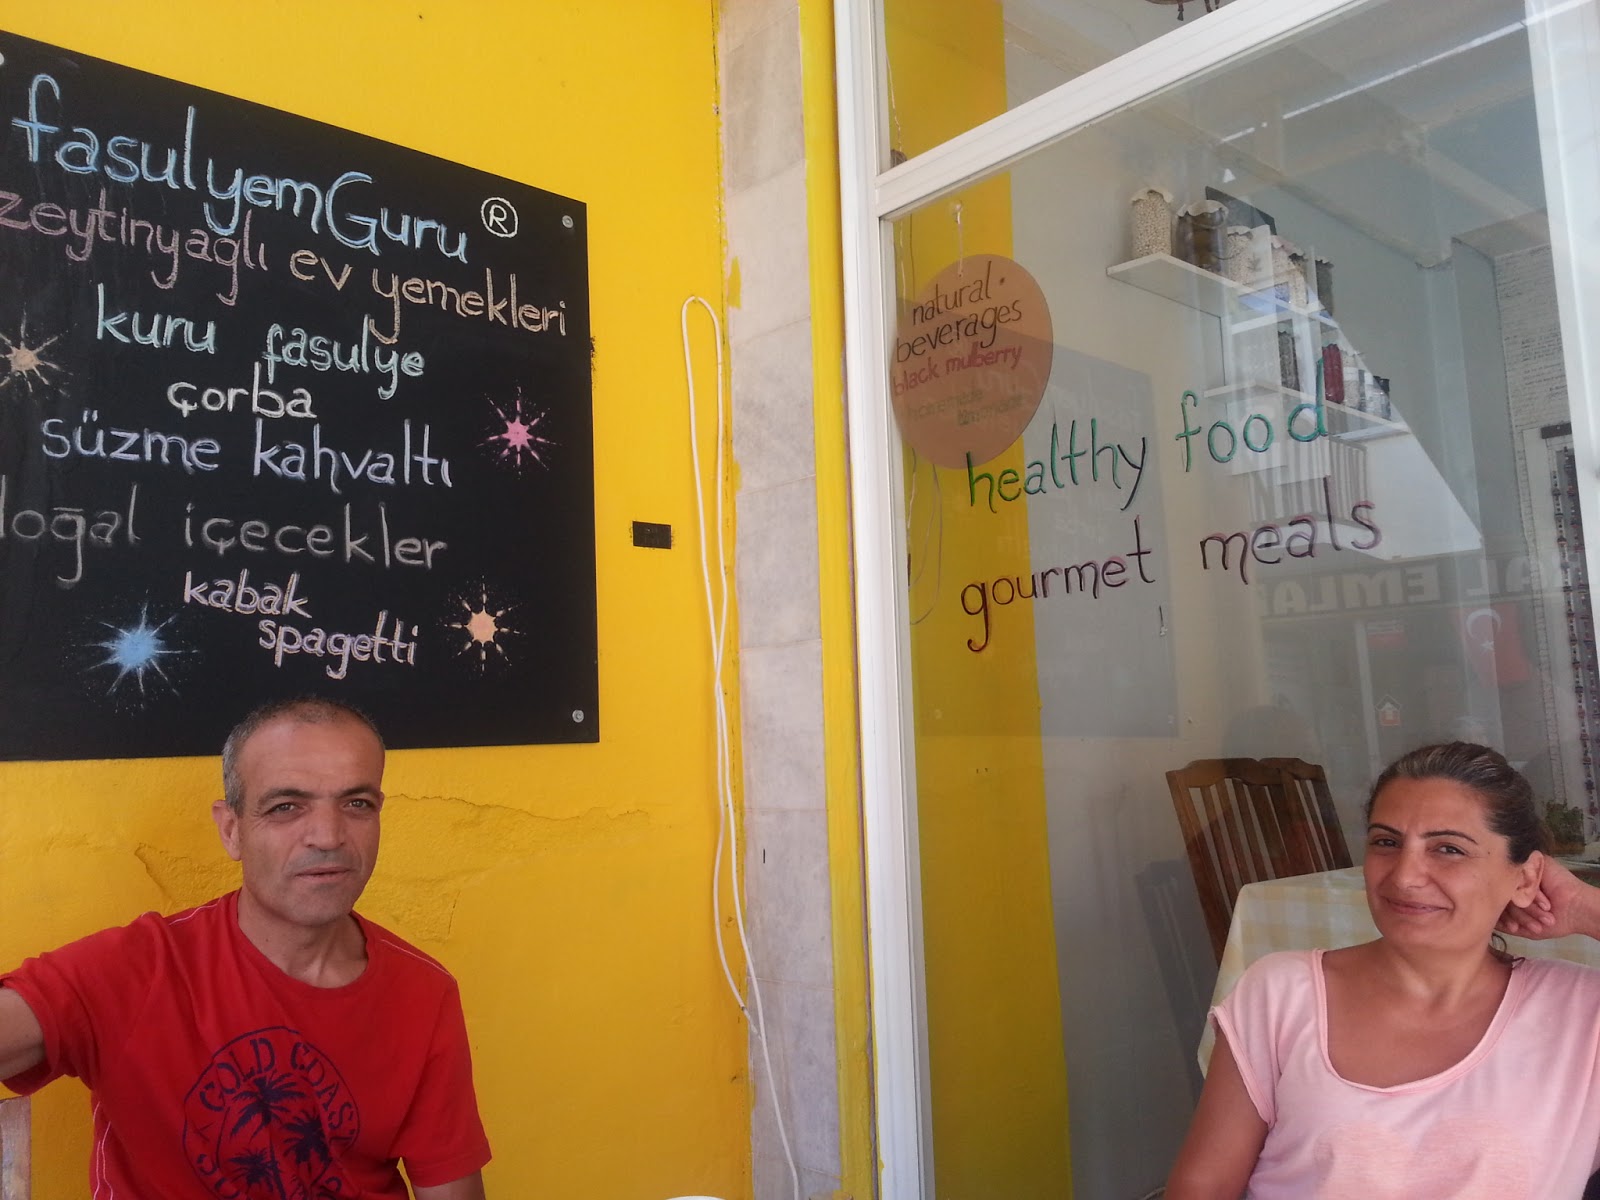 fasulyemGuru ®
zeytinyağlı ev yemekleri
kuru fasulye
çorba
süzme kahvaltı
doğal içecekler
kabak
spagetti
natural
beverages
black mulberry
homemade
limonade
healthy food
gourmet meals
GOLD COAST